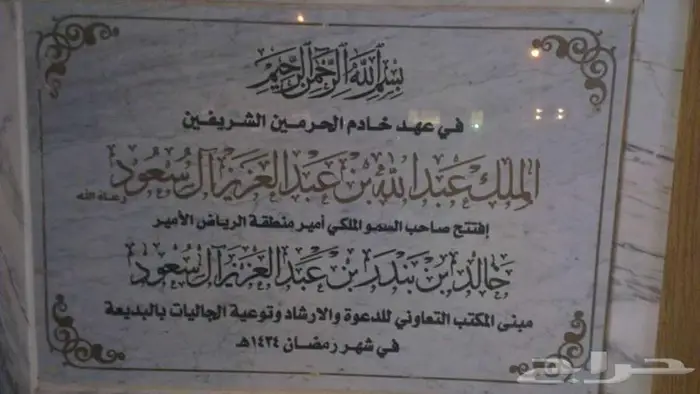 بسم الله الرحمن الرحيم
في عهد خادم الحرمين الشريفين
الملك عبدالله بن عبدالعزيز آل سعود رعاه الله
إفتتح صاحب السمو الملكي أمير منطقة الرياض الأمير
خالد بن بندر بن عبدالعزيز آل سعود
مبنى المكتب التعاوني للدعوة والارشاد وتوعية الجاليات بالبديعة
في شهر رمضان ١٤٣٤هـ
حراج